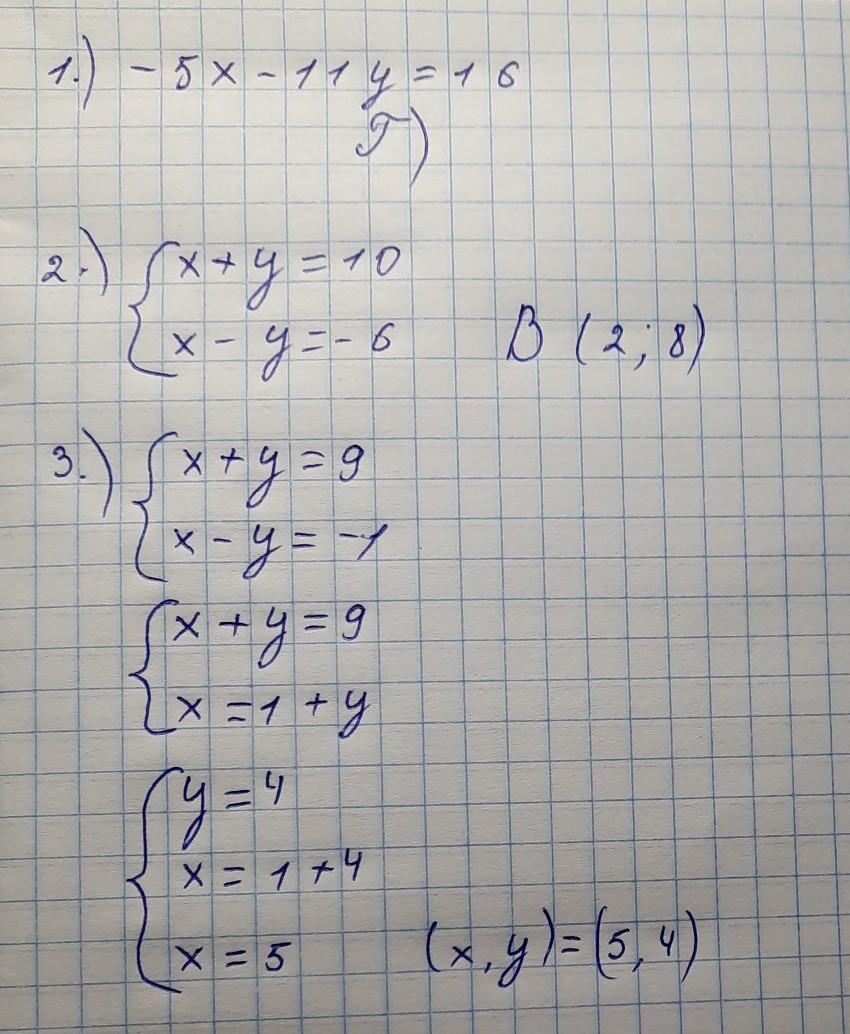 1.) -5x-11y=16
Г)
2.) x+y=10
x-y=-6 В (2;8)
3.) x+y=9
x-y=-1
x+y=9
x=1+y
y=4
x=1+4
x=5 (x,y)=(5,4)